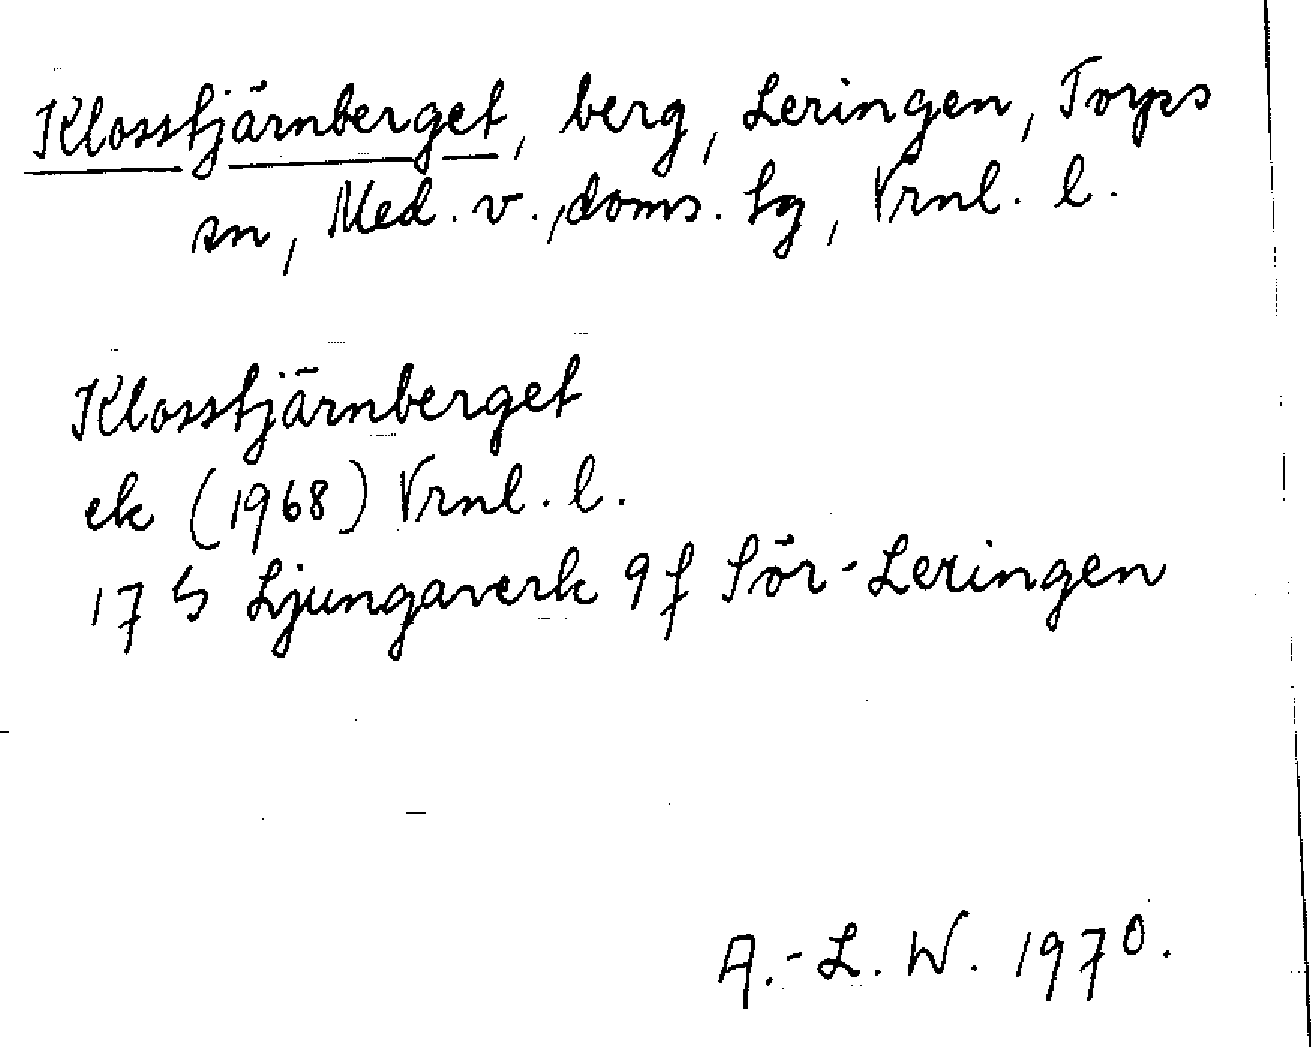 Klosstjärnberget, berg, Leringen, Torps
sn, Med. v., doms. tg, Vrnl. l.
Klosstjärnberget
ek (1968) Vrnl. l.
17 G Ljungaverk 9f Sör-Leringen
A.-L. W. 1970.